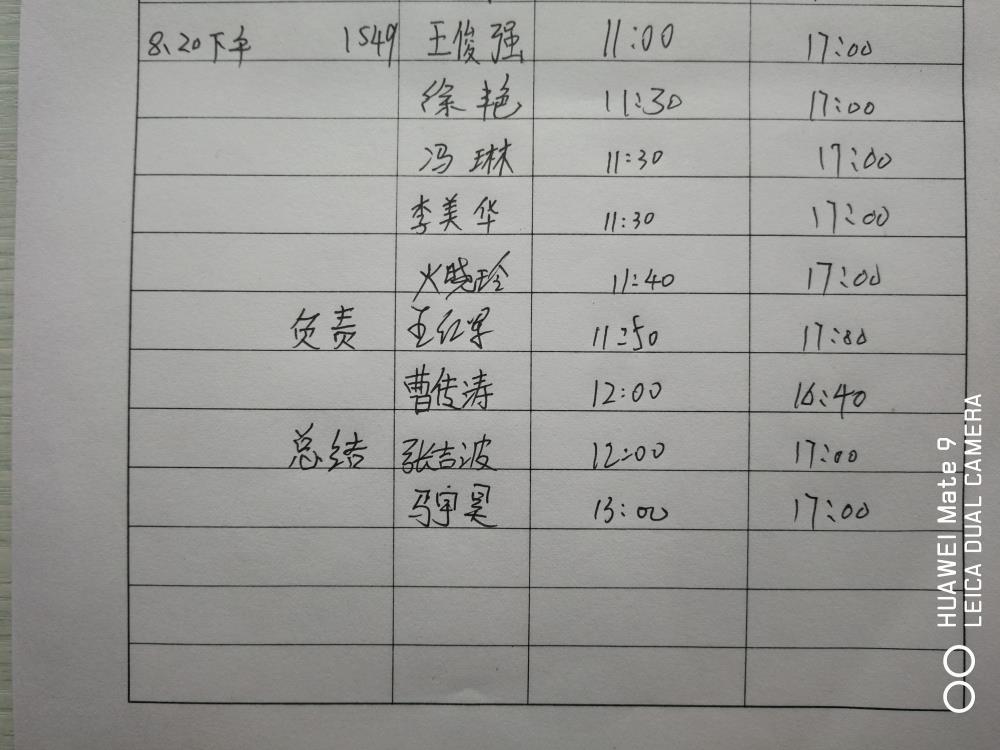 8.20下午 1549 王俊强 11:00 17:00
徐艳 11:30 17:00
冯琳 11:30 17:00
李美华 11:30 17:00
火晓玲 11:40 17:00
负责 王红军 11:50 17:00
曹传涛 12:00 16:40
总结 张吉波 12:00 17:00
马宇昊 13:00 17:00
HUAWEI Mate 9
LEICA DUAL CAMERA